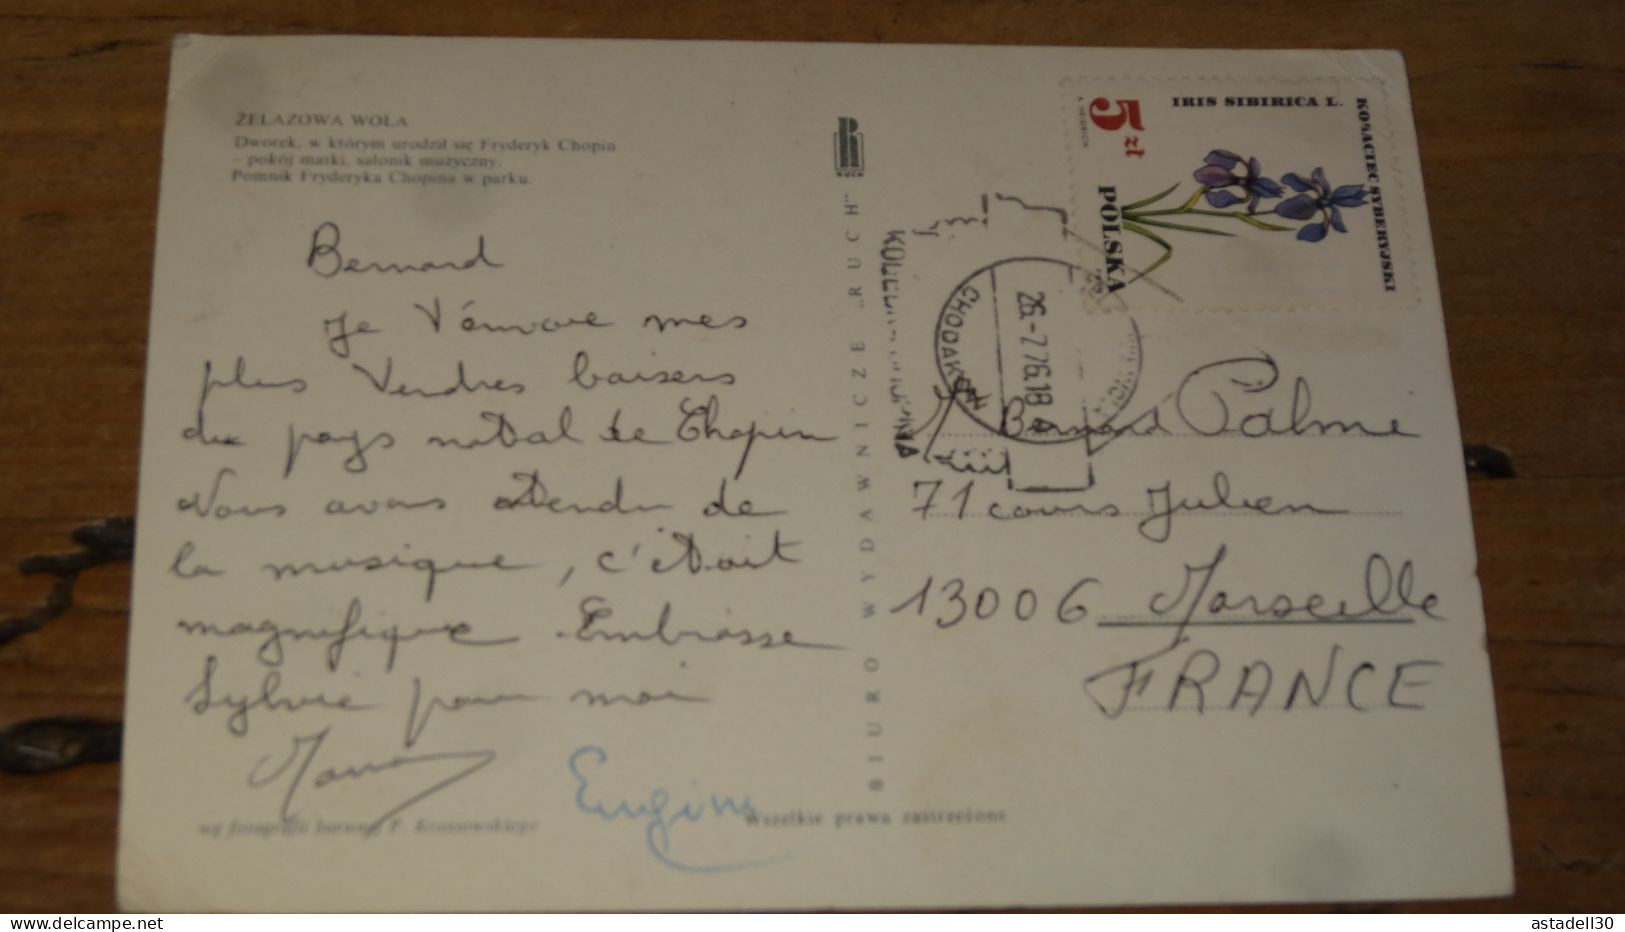 ŻELAZOWA WOLA
Dworek, w którym urodził się Fryderyk Chopin
- pokój matki, salonik muzyczny.
Pomnik Fryderyka Chopina w parku.
Bernard
Je t'envoie mes
plus tendres baisers
du pays natal de Chopin
Nous avons attendu de
la musique, c'était
magnifique. Embrasse
Sylvie pour moi
Eugin
wg fotografii barwnej P. Krassowskiego
Wszelkie prawa zastrzeżone
BIURO WYDAWNICZE „RUCH"
RUCH
5 zł
IRIS SIBIRICA L.
KOSACIEC SYBERYJSKI
POLSKA
26.-7.76.18
CHODAKÓW
Bernard Palme
71 cours Julien
13006 Marseille
FRANCE
astadell30